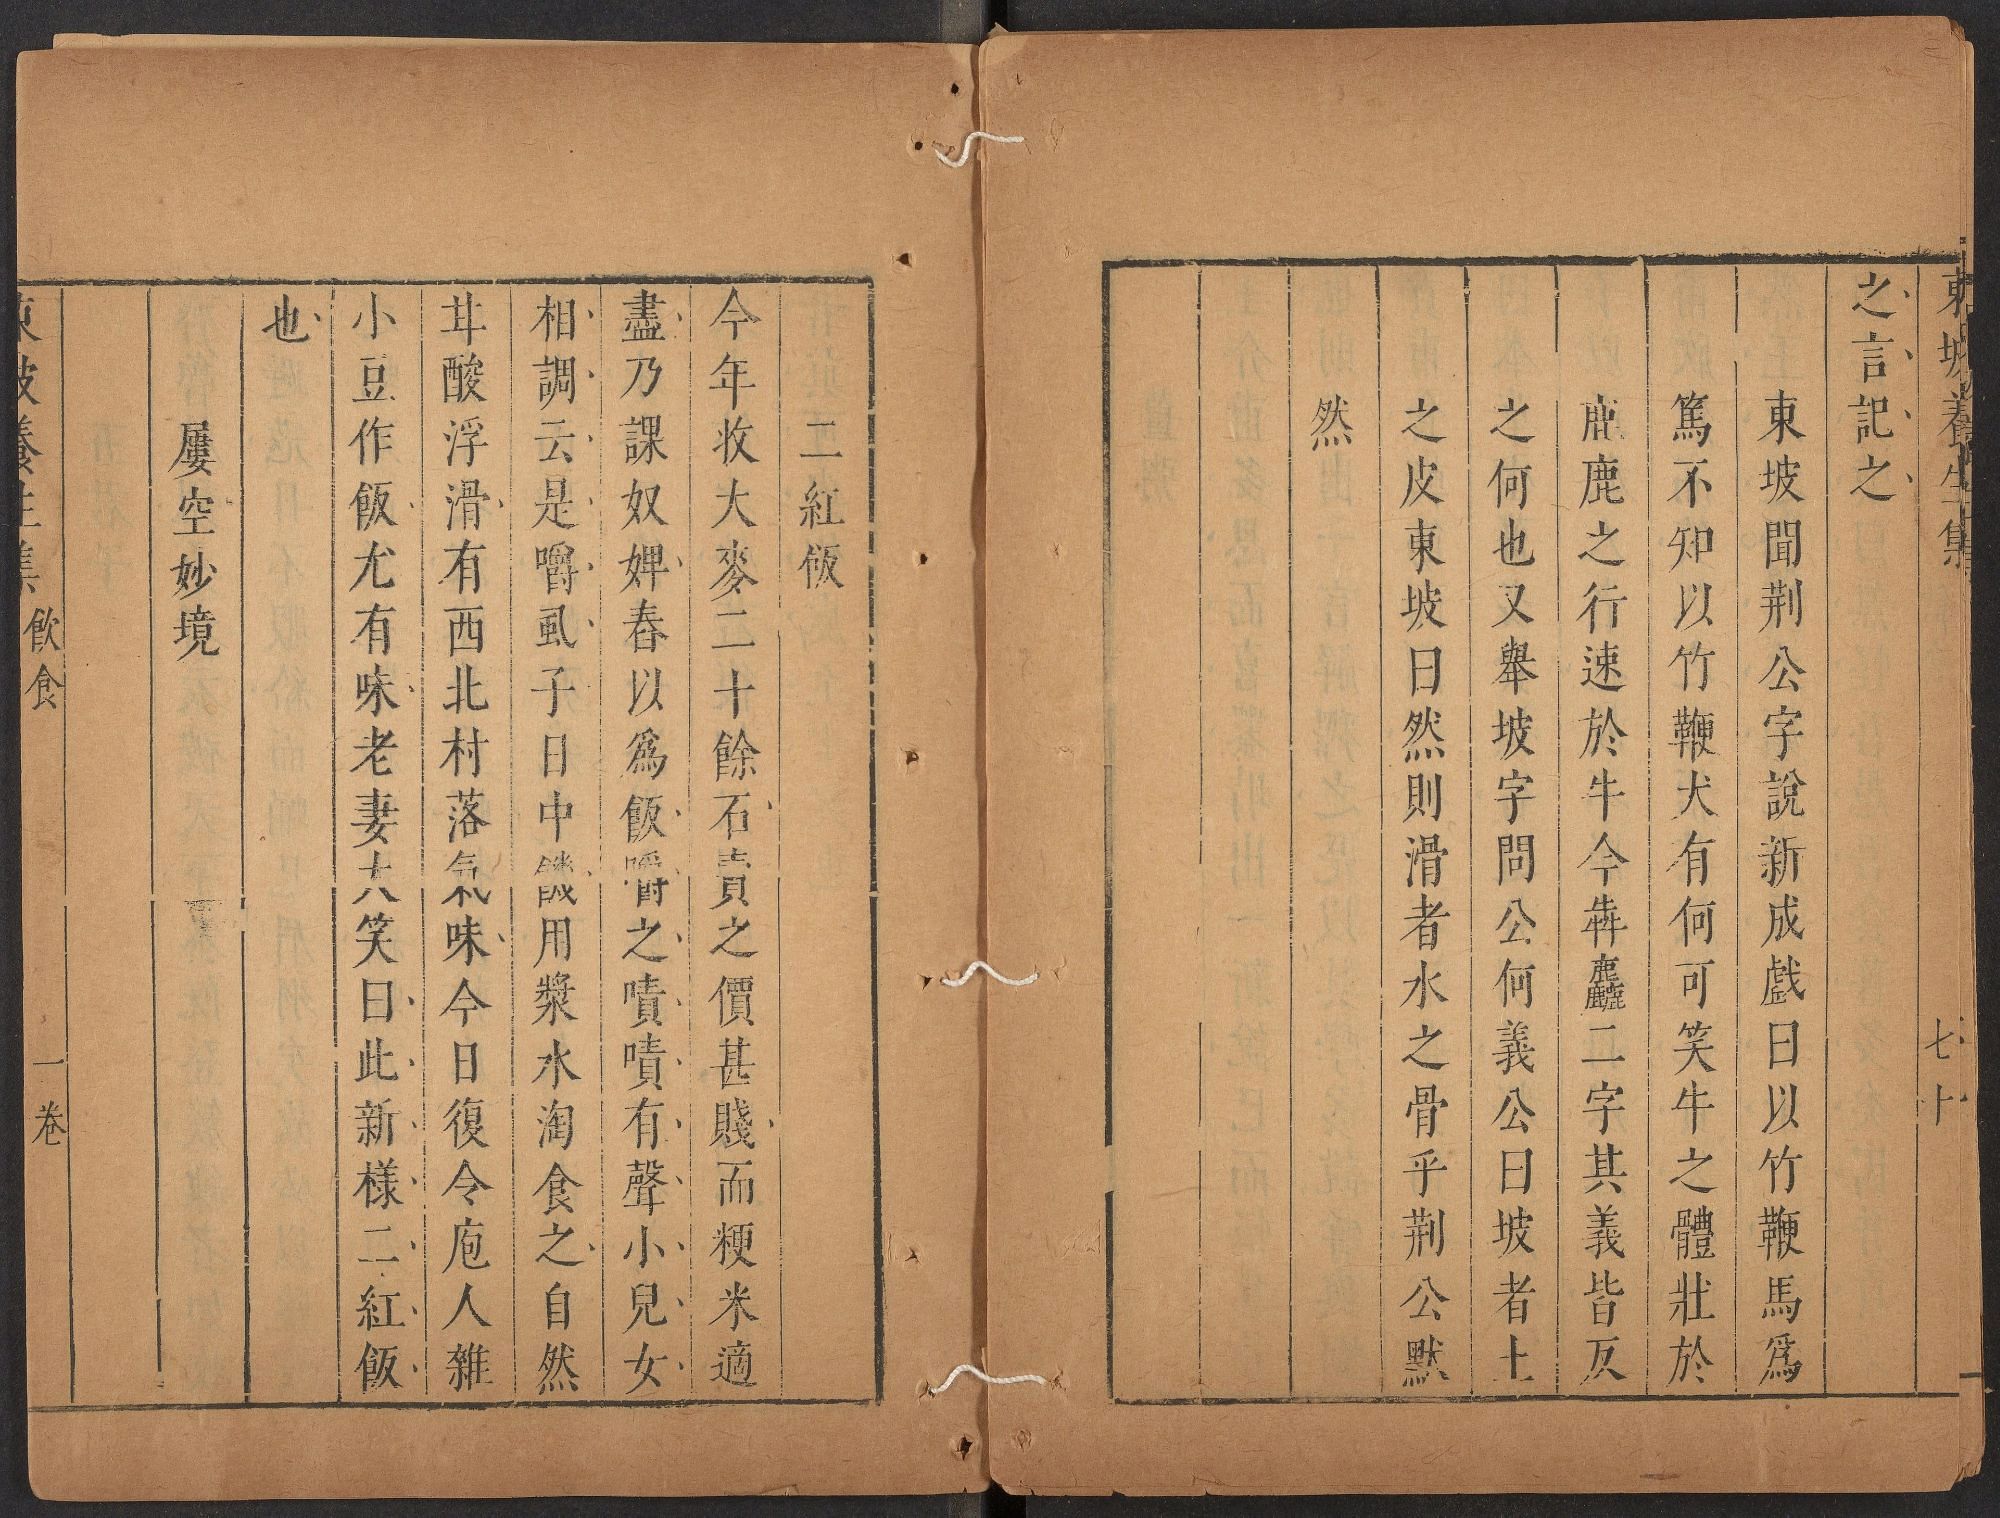 東坡養生集
七十
之言記之
東坡聞荆公字說新成戲曰以竹鞭馬爲
篤不知以竹鞭犬有何可笑牛之體壯於
鹿之行速於牛今犇麤二字其義皆反
之何也又舉坡字問公何義公曰坡者土
之皮東坡曰然則滑者水之骨乎荆公默
然
二紅飯
今年收大麥二十餘石賣之價甚賤而粳米適
盡乃課奴婢舂以爲飯嚼之嘖嘖有聲小兒女
相調云是嚼虱子日中饑用漿水淘食之自然
甘酸浮滑有西北村落氣味今日復令庖人雜
小豆作飯尤有味老妻大笑曰此新樣二紅飯
也
屢空妙境
東坡養生集
飲食
一卷